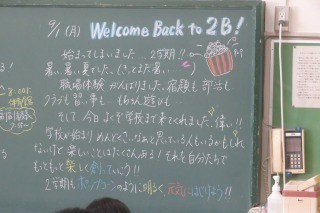 9/1(月) Welcome Back to 2B!
始まってしまいました 2学期!!
暑い暑い夏でした。(きっとまだ暑い
職場体験 がんばりました。宿題も 部活も
クラブも 習い事も もちろん遊びも…
そして、今日 よくぞ 学校まで来てくれました。偉い!!
学校が始まり めんどくさいなぁと思っている人もいるかもしれ
ないけど 楽しいことはたくさんある! それを自分たちで
もっともっと 楽しく 創っていこう!!
2学期も ポップコーンのように 明るく 元気に はじけよう!!
8:00に
体育館